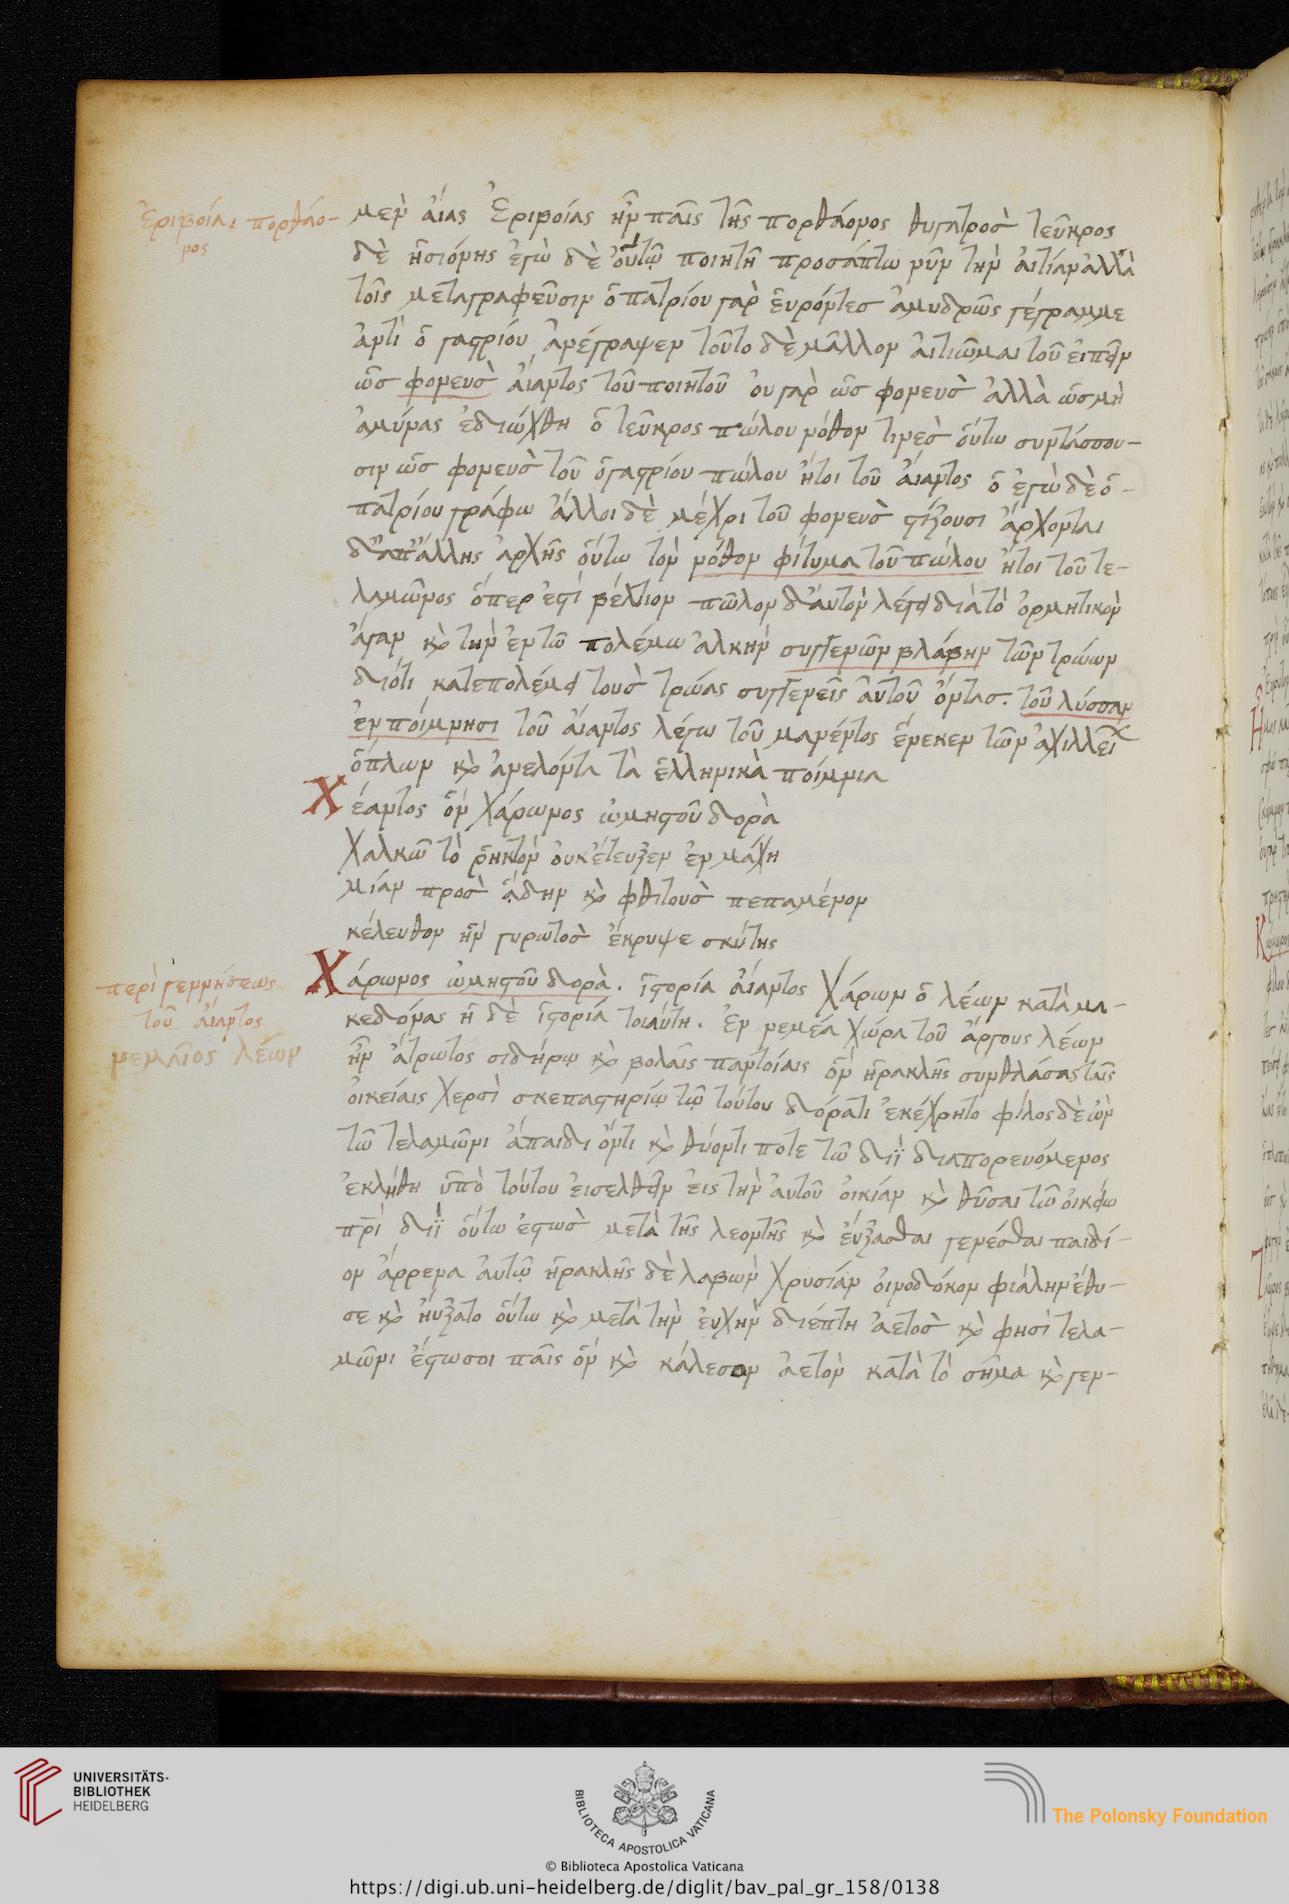 Ἐριβοία, πορθάο-
νος
μὲν ἀίας Ἐριβοίας ἦν παῖς τῆς πορθάονος θυγατρὸς τεῦκρος
δὲ ἡσιόνης ἐγὼ δὲ οὔτῶ ποιητῆ προσάπτω νῦν τὴν αἰτίαν ἀλλὰ
τοῖς μεταγραφεῦσιν ὀπατρίου γὰρ εὑρόντες ἀμυδρῶς γέγραμμε
ἀντὶ ὃ γαστρίου ἀνέγραψεν τοῦτο δὲ μᾶλλον αἰτιῶμαι τοῦ εἰπεῖν
ὡς φονεὺς αἴαντος τοῦ ποιητοῦ οὐ γὰρ ὡς φονεὺς ἀλλὰ ὡς μὴ
ἀμύνας ἐδιώχθη ὁ τεῦκρος πώλου νόθον τινὲς οὕτω συντάσσου-
σιν ὡς φονεὺς τοῦ ὁγαστρίου πώλου ἤτοι τοῦ αἴαντος ὃ ἐγὼ δὲ ὀ-
πατρίου γράφω ἄλλοι δὲ μέχρι τοῦ φονεὺς στίζουσι ἄρχονται
δ' ἀπ' ἄλλης ἀρχῆς οὕτω τὸν νόθον φίτυμα τοῦ πώλου ἤτοι τοῦ τε-
λαμῶνος ὅπερ ἐστὶ βέλτιον πῶλον δ' αὐτὸν λέγει διὰ τὸ ὁρμητικὸν
ἄγαν καὶ τὴν ἐν τῶ πολέμω ἀλκὴν συγγενῶν βλάβην τῶν τρώων
διότι κατεπολέμει τοὺς τρῶας συγγενεῖς αὐτοῦ ὄντας. τοῦ λύσσαν
ἐν ποίμνησι τοῦ αἴαντος λέγω τοῦ μανέντος ἕνεκεν τῶν ἀχιλλεί
ὅπλων καὶ ἀνελόντα τὰ ἑλληνικὰ ποίμνια
Χέαντος ὃν χάρωνος ὠμηστοῦ δορὰ
χαλκῶ τὸ ῥηκτὸν οὐκ ἔτευξεν ἐν μάχη
μίαν πρὸς ἅδην καὶ φθιτοὺς πεπαμένον
κέλευθον ἣν γυρωτὸς ἔκρυψε σκύτης
Χάρωνος ὠμηστοῦ δορὰ. ἱστορία αἴαντος χάρων ὁ λέων κατὰ μα-
περὶ γεννήσεως
τοῦ αἴαντος
νεμαῖος λέων
κεδόνας ἡ δὲ ἱστορία τοιαύτη. Ἐν νεμέα χώρα τοῦ ἄργους λέων
ἦν ἄτρωτος σιδήρῳ καὶ βολαῖς παντοίαις ὃν ἡρακλῆς συνθλάσας ταῖς
οἰκείαις χερσὶ σκεπαστηρίῳ τῶ τούτου δόρατι ἐκέχρητο φίλος δὲ ὢν
τῶ τελαμῶνι ἄπαιδι ὄντι καὶ θύοντι ποτε τῶ διῒ διαπορευόμενος
ἐκλήθη ὑπὸ τούτου εἰσελθεῖν εἰς τὴν αὐτοῦ οἰκίαν καὶ θῦσαι τῶ οἰκείω
πρὶ διῒ οὕτω ἑστὼς μετὰ τῆς λεοντῆς καὶ εὔξασθαι γενέσθαι παιδί-
ον ἄρρενα αὐτῶ ἡρακλῆς δὲ λαβὼν χρυσίαν οἰνοδόκον φιάλην ἔθυ-
σε καὶ ηὔξατο οὕτω καὶ μετὰ τὴν εὐχὴν διέπτη ἀετὸς καὶ φησὶ τελα-
μῶνι ἔστωσοι παῖς ὃν καὶ κάλεσον ἀετὸν κατὰ τὸ σῆμα καὶ γεν-
UNIVERSITÄTS-
BIBLIOTHEK
HEIDELBERG
BIBLIOTECA APOSTOLICA VATICANA
The Polonsky Foundation
© Biblioteca Apostolica Vaticana
https://digi.ub.uni-heidelberg.de/diglit/bav_pal_gr_158/0138